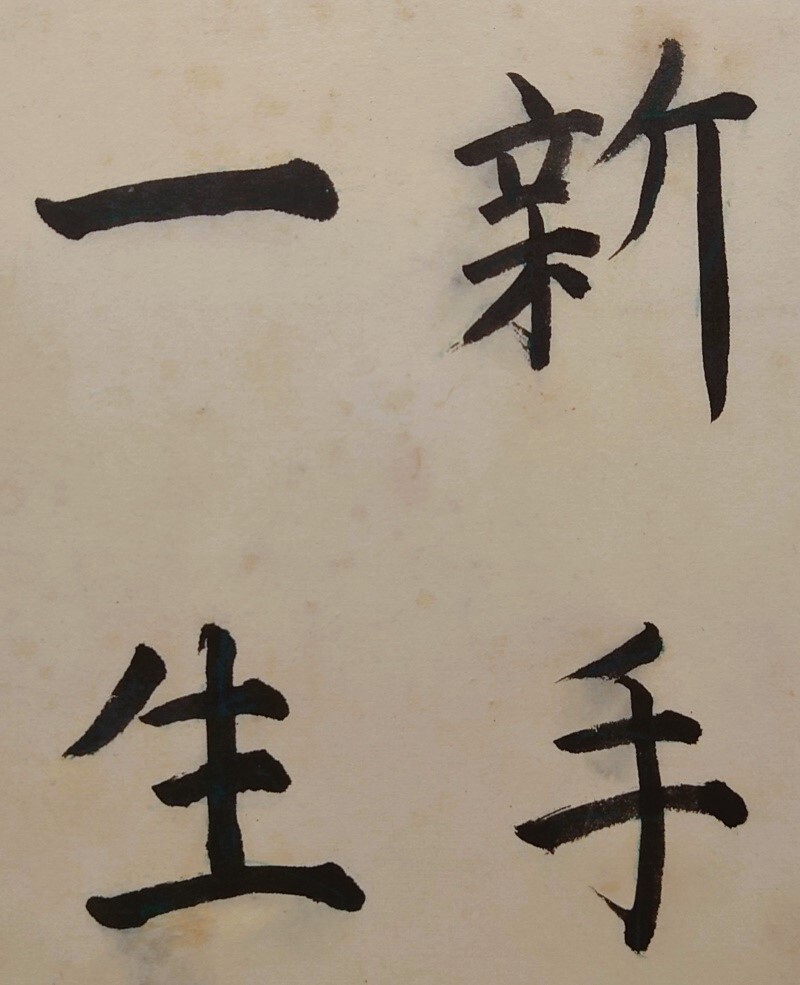 新手
一生